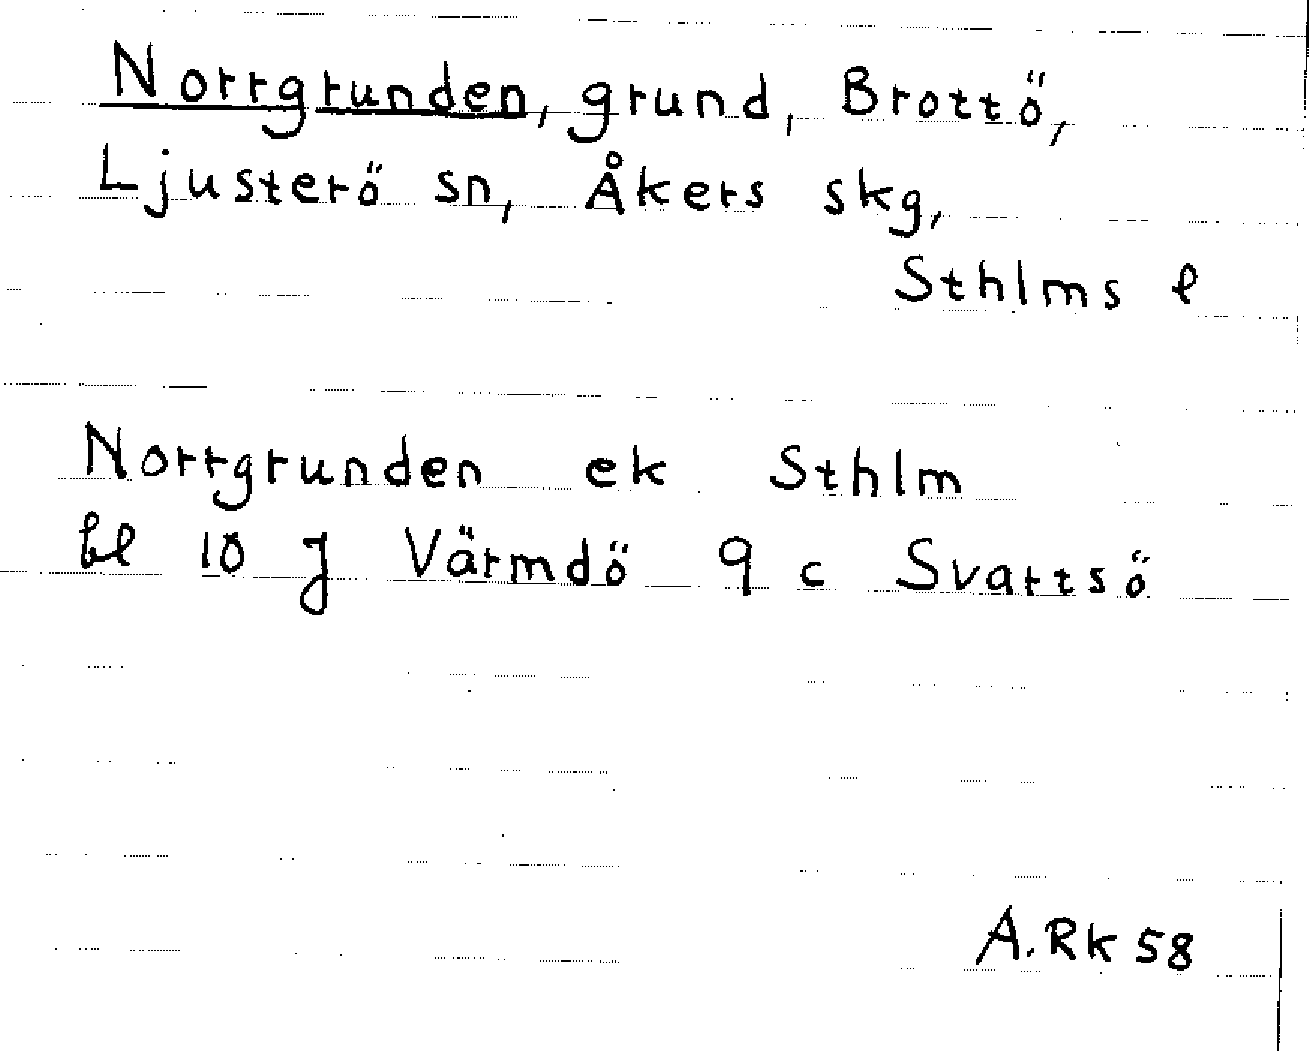 Norrgrunden, grund, Brottö,
Ljusterö sn, Åkers skg,
Sthlms l
Norrgrunden ek Sthlm
bl 10 J Värmdö 9 c Svartsö
A. Rk 58